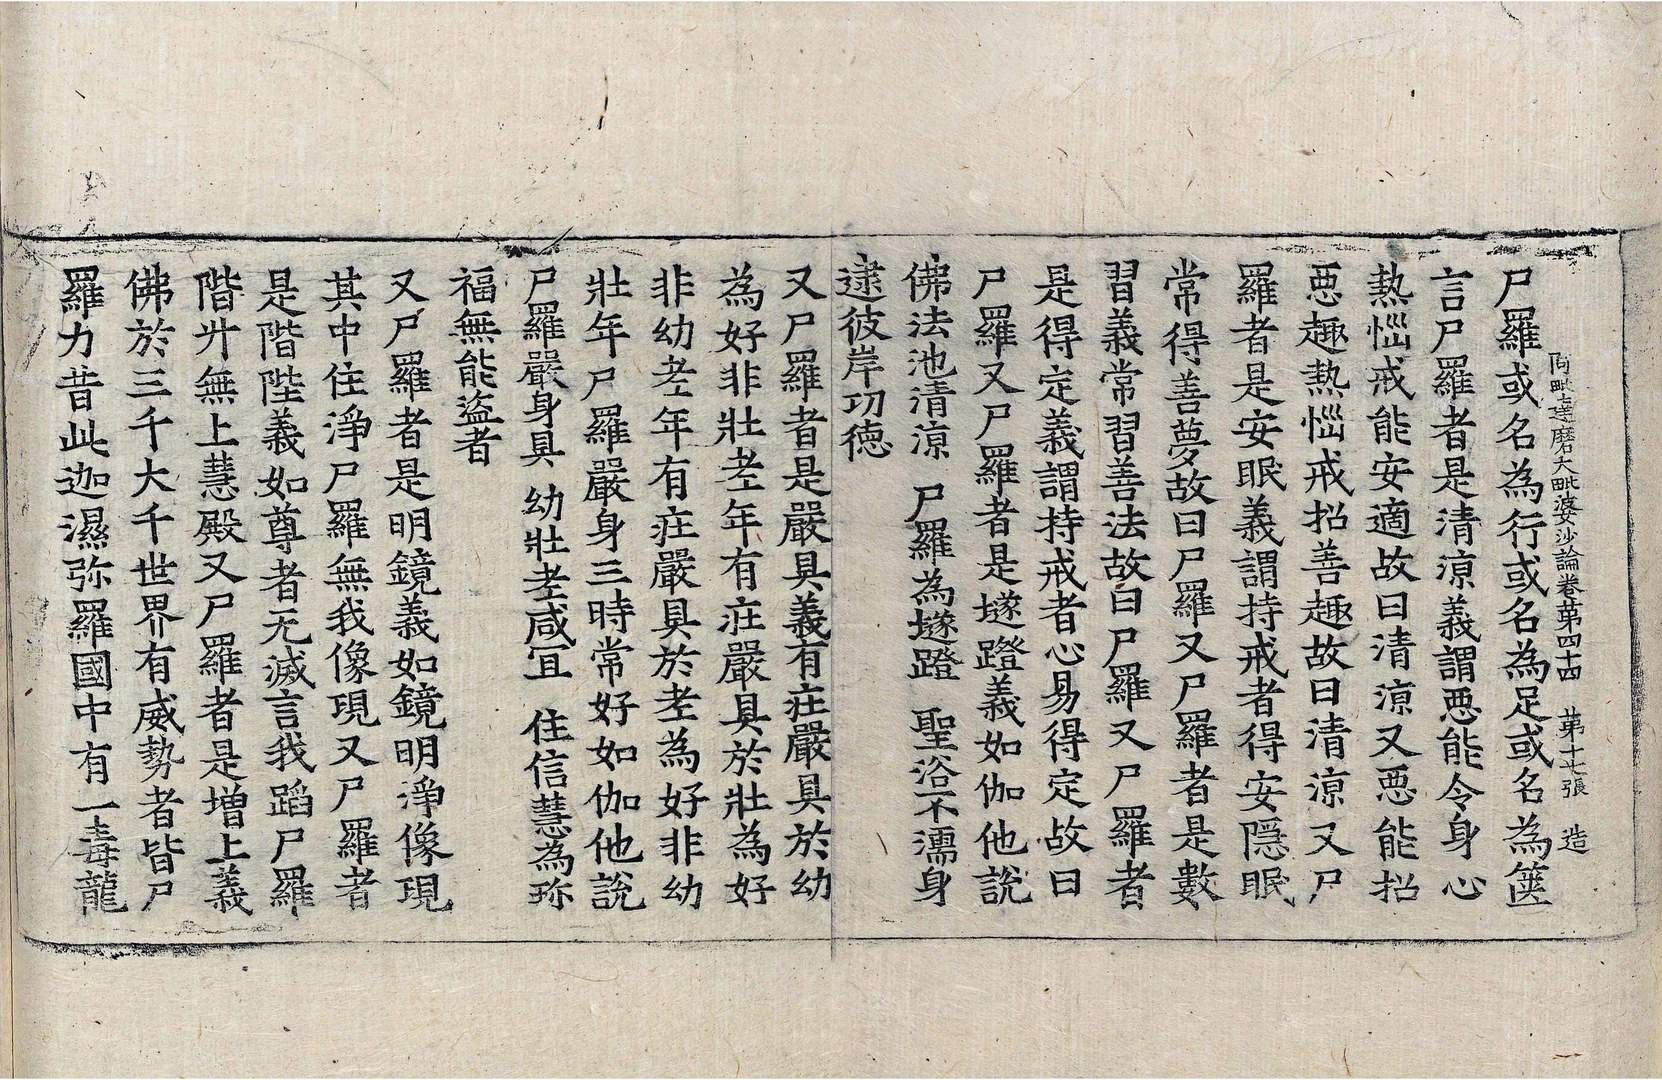 阿毗達磨大毗婆沙論卷苐四十四　苐十七張　造
尸羅或名為行或名為足或名為篋
言尸羅者是清涼義謂惡能令身心
熱惱戒能安適故曰清涼又惡能招
惡趣熱惱戒招善趣故曰清涼又尸
羅者是安眠義謂持戒者得安隱眠
常得善夢故曰尸羅又尸羅者是數
習義常習善法故曰尸羅又尸羅者
是得定義謂持戒者心易得定故曰
尸羅又尸羅者是墱蹬義如伽他說
佛法池清涼　尸羅為墱蹬　聖浴不濡身
逮彼岸功德
又尸羅者是嚴具義有庄嚴具於幼
為好非壯老年有庄嚴具於壯為好
非幼老年有庄嚴具於老為好非幼
壯年尸羅嚴身三時常好如伽他說
尸羅嚴身具　幼壯老咸冝　住信慧為珎
福無能盜者
又尸羅者是明鏡義如鏡明淨像現
其中住淨尸羅無我像現又尸羅者
是階陛義如尊者无滅言我蹈尸羅
階升無上慧殿又尸羅者是增上義
佛於三千大千世界有威勢者皆尸
羅力昔此迦濕弥羅國中有一毒龍